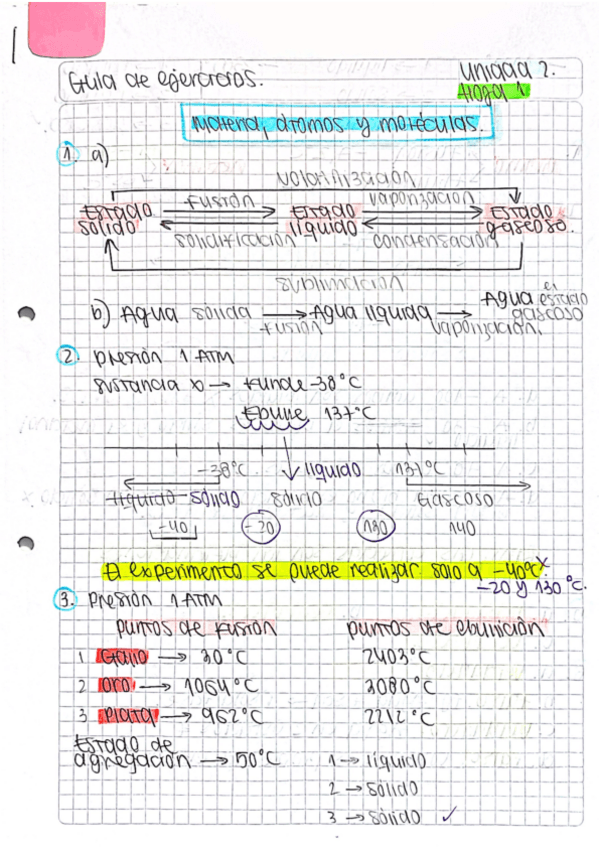 Guía de ejercicios.
Unidad 2.
Hoja 1
Materia, átomos y moléculas.
1. a)
Volatilización
Fusión
vaporización
Estado sólido
Estado líquido
Estado gaseoso.
solidificación
condensación
sublimación
b) Agua sólida → Agua líquida → Agua en estado gaseoso
fusión
vaporización.
2. Presión 1 ATM
sustancia x → Funde -38°C
Ebulle 137°C
-38°C líquido 137°C
líquido sólido sólido Gaseoso
-40 -20 130 140
El experimento se puede realizar solo a -40°C x
-20 y 130 °C.
3. Presión 1 ATM
puntos de fusión puntos de ebullición
1 Galio → 30°C 2403°C
2 Oro → 1064°C 3080°C
3 Plata → 962°C 2212°C
Estado de agregación → 50°C 1 → líquido
2 → sólido
3 → sólido ✓